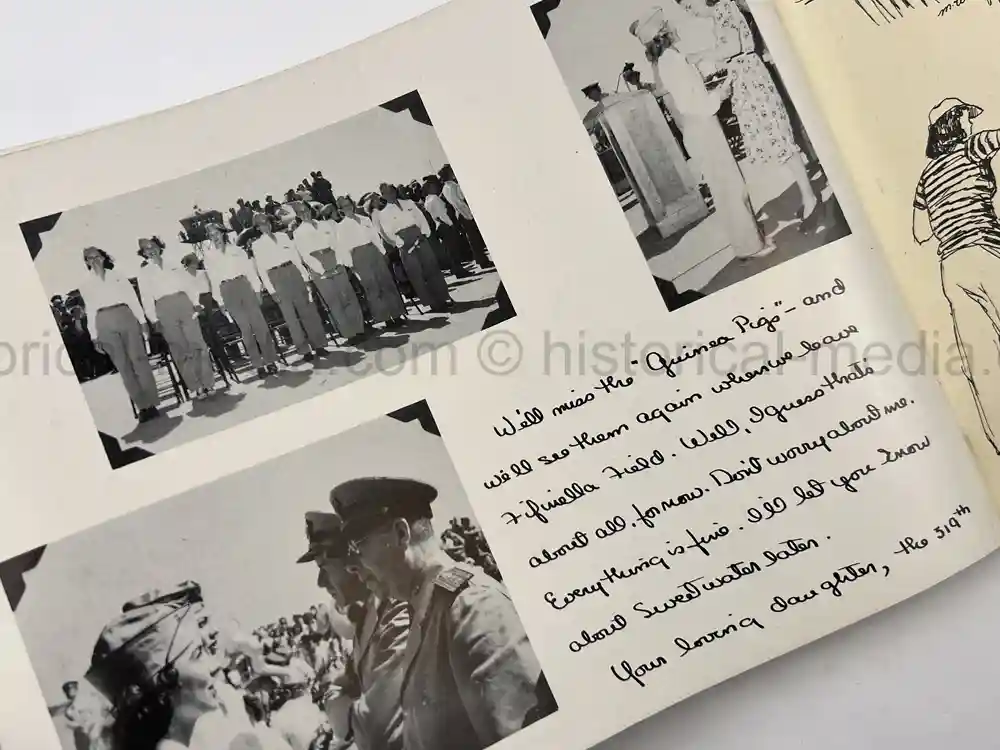 We'll miss the "Guinea Pigs" - and
we'll see them again when we leave
Fifinella Field. Well, I guess that's
about all, for now. Don't worry about me.
Everything is fine. I'll let you know
about Sweetwater later.
Your loving daughter, the 319th
historical-media.com © historical-media.